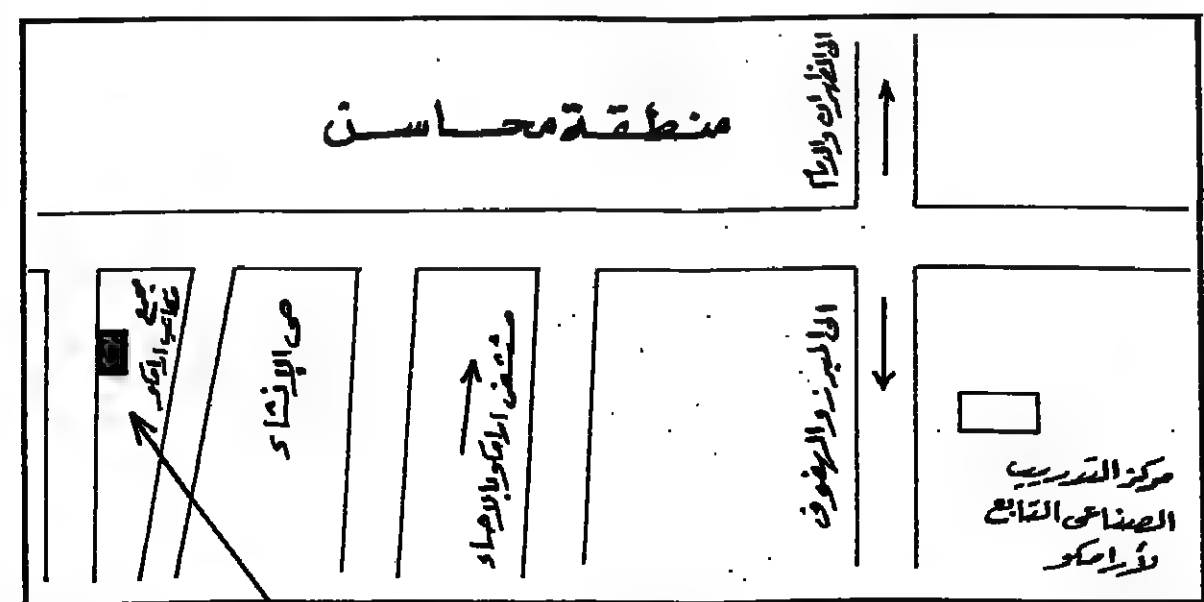 منطقة محاسن
الى الظهران والدمام
الى المبرز والهفوف
مركز التدريب
الصناعى التابع
لأرامكو
مستشفى ارامكو بالاحساء
حى الإنشاء
مجمع
مكاتب ارامكو